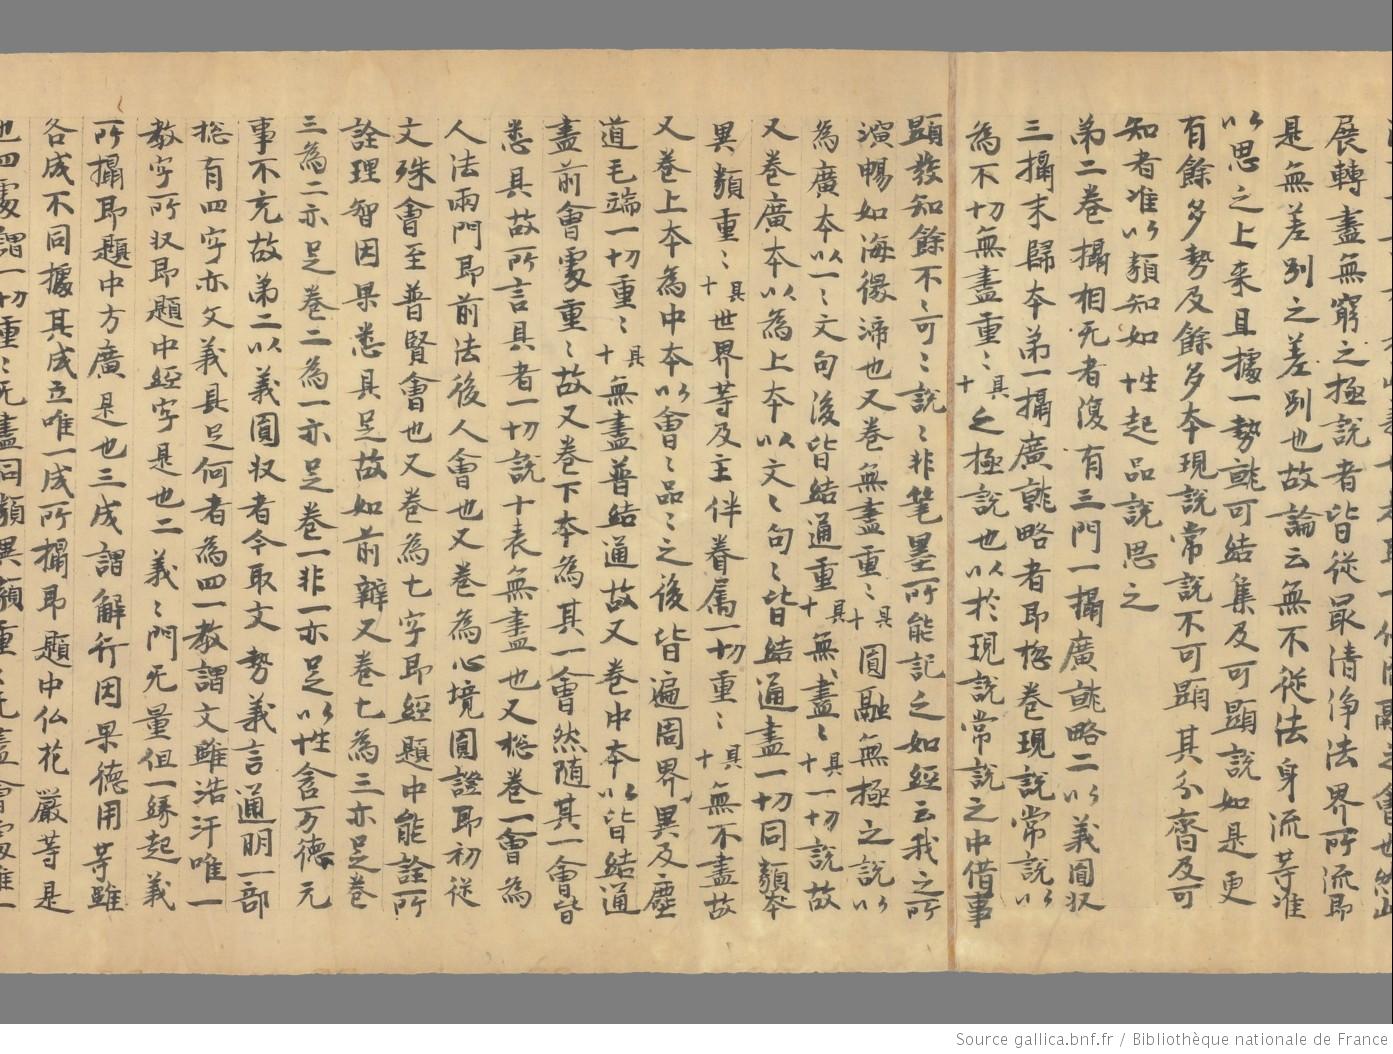 展轉盡無窮之極說者皆從最清淨法界所流即
是無差別之差別也故論云無不從法身流等准
以思之上来且據一勢毗可結集及可顯說如是更
有餘多勢及餘多本現說常說不可顯其分齊及可
知者准以類知如性起品說思之
第二卷攝相死者復有三門一攝廣毗略二以義圓収
三攝末歸本第一攝廣毗略者即惣卷現說常說以
為不切無盡重〻十具之極說也以於現說常說之中借事
顯發知餘不〻可〻說〻非筆墨所能記之如經云我之所
演暢如海微渧也又卷無盡重〻十具圓融無極之說以
為廣本以一〻文句後皆結通重十具無盡〻十具一切說故
又卷廣本以為上本以文〻句〻皆結通盡一切同類本
異類重〻十具世界等及主伴眷属一切重〻十具無不盡故
又卷上本為中本以會〻品〻之後皆遍周界異及塵
道毛端一切重〻十具無盡普結通故又卷中本以皆結通
盡前會處重〻故又卷下本為其一會然随其一會皆
悉具故所言具者一切說十表無盡也又惣卷一會為
人法兩門即前法後人會也又卷為心境圓證即初従
文殊會至普賢會也又卷為七字即經題中能詮所
詮理智因果悉具足故如前辯又卷七為三亦足卷
三為二亦足卷二為一亦足卷一非一亦足以性含万德无
事不充故第二以義圓収者今取文勢義言通明一部
惣有四字亦文義具足何者為四一教謂文雖浩汗唯一
教字所収即題中經字是也二義〻門无量但一緣起義
所攝即題中方廣是也三成謂解行因果德用等雖
各成不同據其成立唯一成所攝即題中仏花嚴等是
也四處謂一切重〻无盡同類異類重〻无盡會處雖一
Source gallica.bnf.fr / Bibliothèque nationale de France